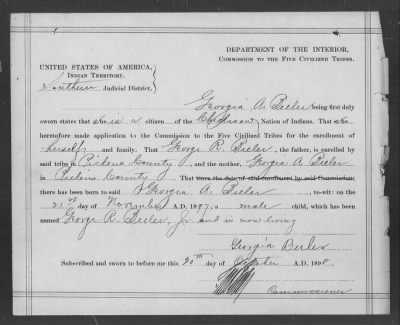 DEPARTMENT OF THE INTERIOR,
COMMISSION TO THE FIVE CIVILIZED TRIBES.
UNITED STATES OF AMERICA,
INDIAN TERRITORY.
Southern Judicial District.
Georgia A. Beeler being first duly
sworn states that she is a citizen of the Chickasaw Nation of Indians. That she
heretofore made application to the Commission to the Five Civilized Tribes for the enrollment of
herself and family. That George R. Beeler, the father, is enrolled by
said tribe in Pickens County, and the mother, Georgia A. Beeler
in Pickens County, That since the date of said enrollment by said Commission
there has been born to said Georgia A. Beeler, to-wit: on the
21st day of November A.D. 1897, a male child, which has been
named George R. Beeler, Jr. and is now living
Georgia Beeler
Subscribed and sworn to before me this 20th day of October A.D. 1898.
Commissioner